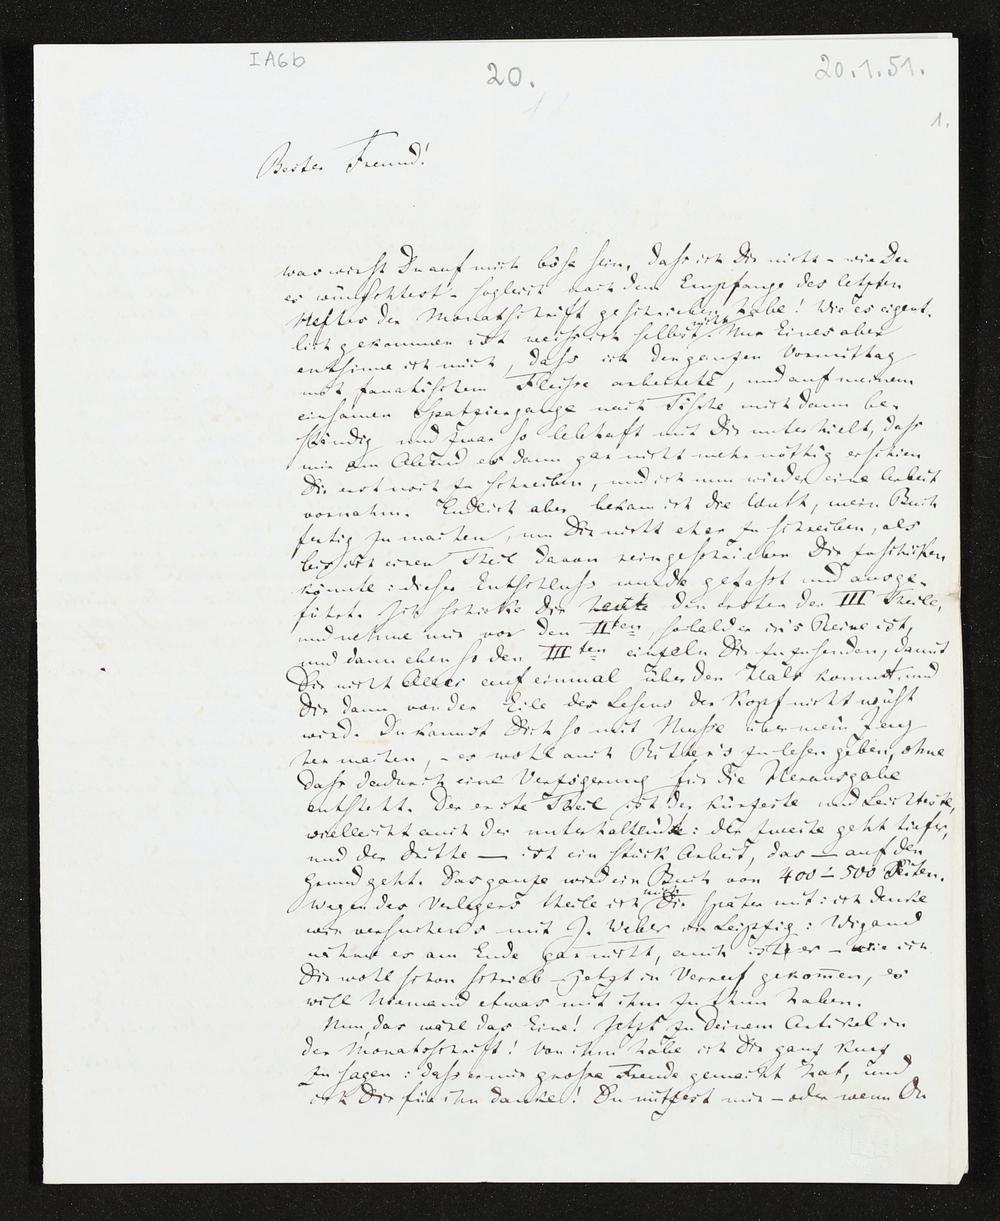 IA6b
20.
20.1.51.
1.
Bester Freund!
was wirst Du auf mich böse sein, dass ich Dir nicht – wie Du
es wünschtest – sogleich nach dem Empfange des letzten
Heftes der Monatschrift geschrieben habe! Wie es eigent-
lich gekommen ist weiss ich selbst nicht. Nur Eines aber
entsinne ich mich, dass ich den ganzen Vormittag
mit fanatischem Fleisse arbeitete, und auf meinem
einsamen Spatziergange nach Tische mich dann be-
ständig und zwar so lebhaft mit Dir unterhielt, dass
mir am Abend es dann gar nicht mehr nöthig erschien
Dir erst noch zu schreiben, und ich nun wieder eine Arbeit
vornahm. Endlich aber bekam ich die Wuth, mein Buch
fertig zu machen, um Dir nicht eher zu schreiben, als
bis ich einen Theil davon reingeschrieben Dir zuschicken
könnte: dieser Entschluss wurde gefasst und ausge-
führt. Ich schicke Dir heute den ersten der III Theile,
und nehme mir vor den IIten, sobald er in's Reine ist,
und dann eben so den IIIten einzeln Dir zuzusenden, damit
Dir nicht Alles auf einmal über den Hals kommt, und
Dir dann von der Eile des Lesens der Kopf nicht wüst
wird. Du kannst Dich so mit Musse über mein Zeug
her machen, – es wohl auch Ritter's zu lesen geben, ohne
dass dadurch eine Verzögerung für die Herausgabe
entsteht. Der erste Theil ist der kürzeste und leichteste,
vielleicht auch der unterhaltendste: der zweite geht tiefer,
und der dritte — ist ein Stück Arbeit, das — auf den
Grund geht. Das ganze wird ein Buch von 400–500 Seiten.
Wegen des Verlegers theile ich mich Dir später mit: ich denke
wir versuchen's mit J. Weber in Leipzig: Wigand
nähme es am Ende gar nicht, auch ist er – wie ich
Dir wohl schon schrieb – jetzt in Verruf gekommen, es
will Niemand etwas mit ihm zu thun haben.
Nun, das wäre das Eine! Jetzt zu Deinem Artikel in
der Monatsschrift! Von ihm habe ich Dir ganz kurz
zu sagen: dass er mir grosse Freude gemacht hat, und
ich Dir für ihn danke! Du nützest mir – oder wenn Du